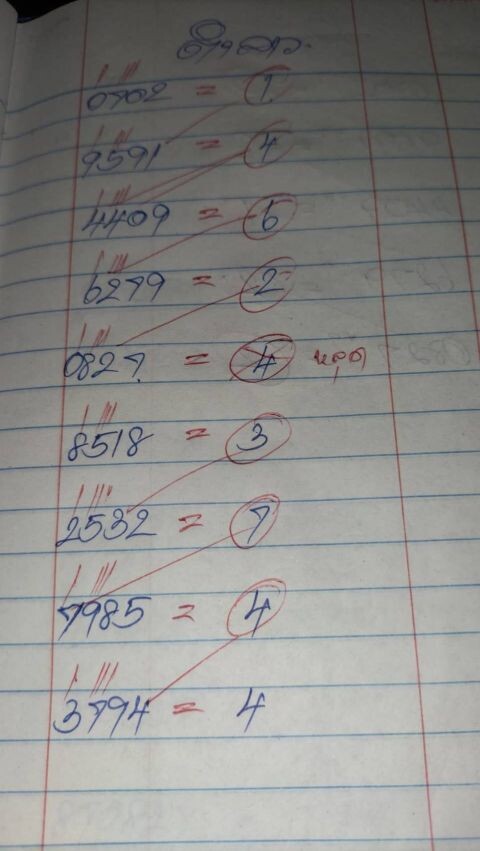 0702 = 1
9591 = 4
4409 = 6
6279 = 2
0827 = 4 หลุด
8518 = 3
2532 = 7
7985 = 4
3794 = 4